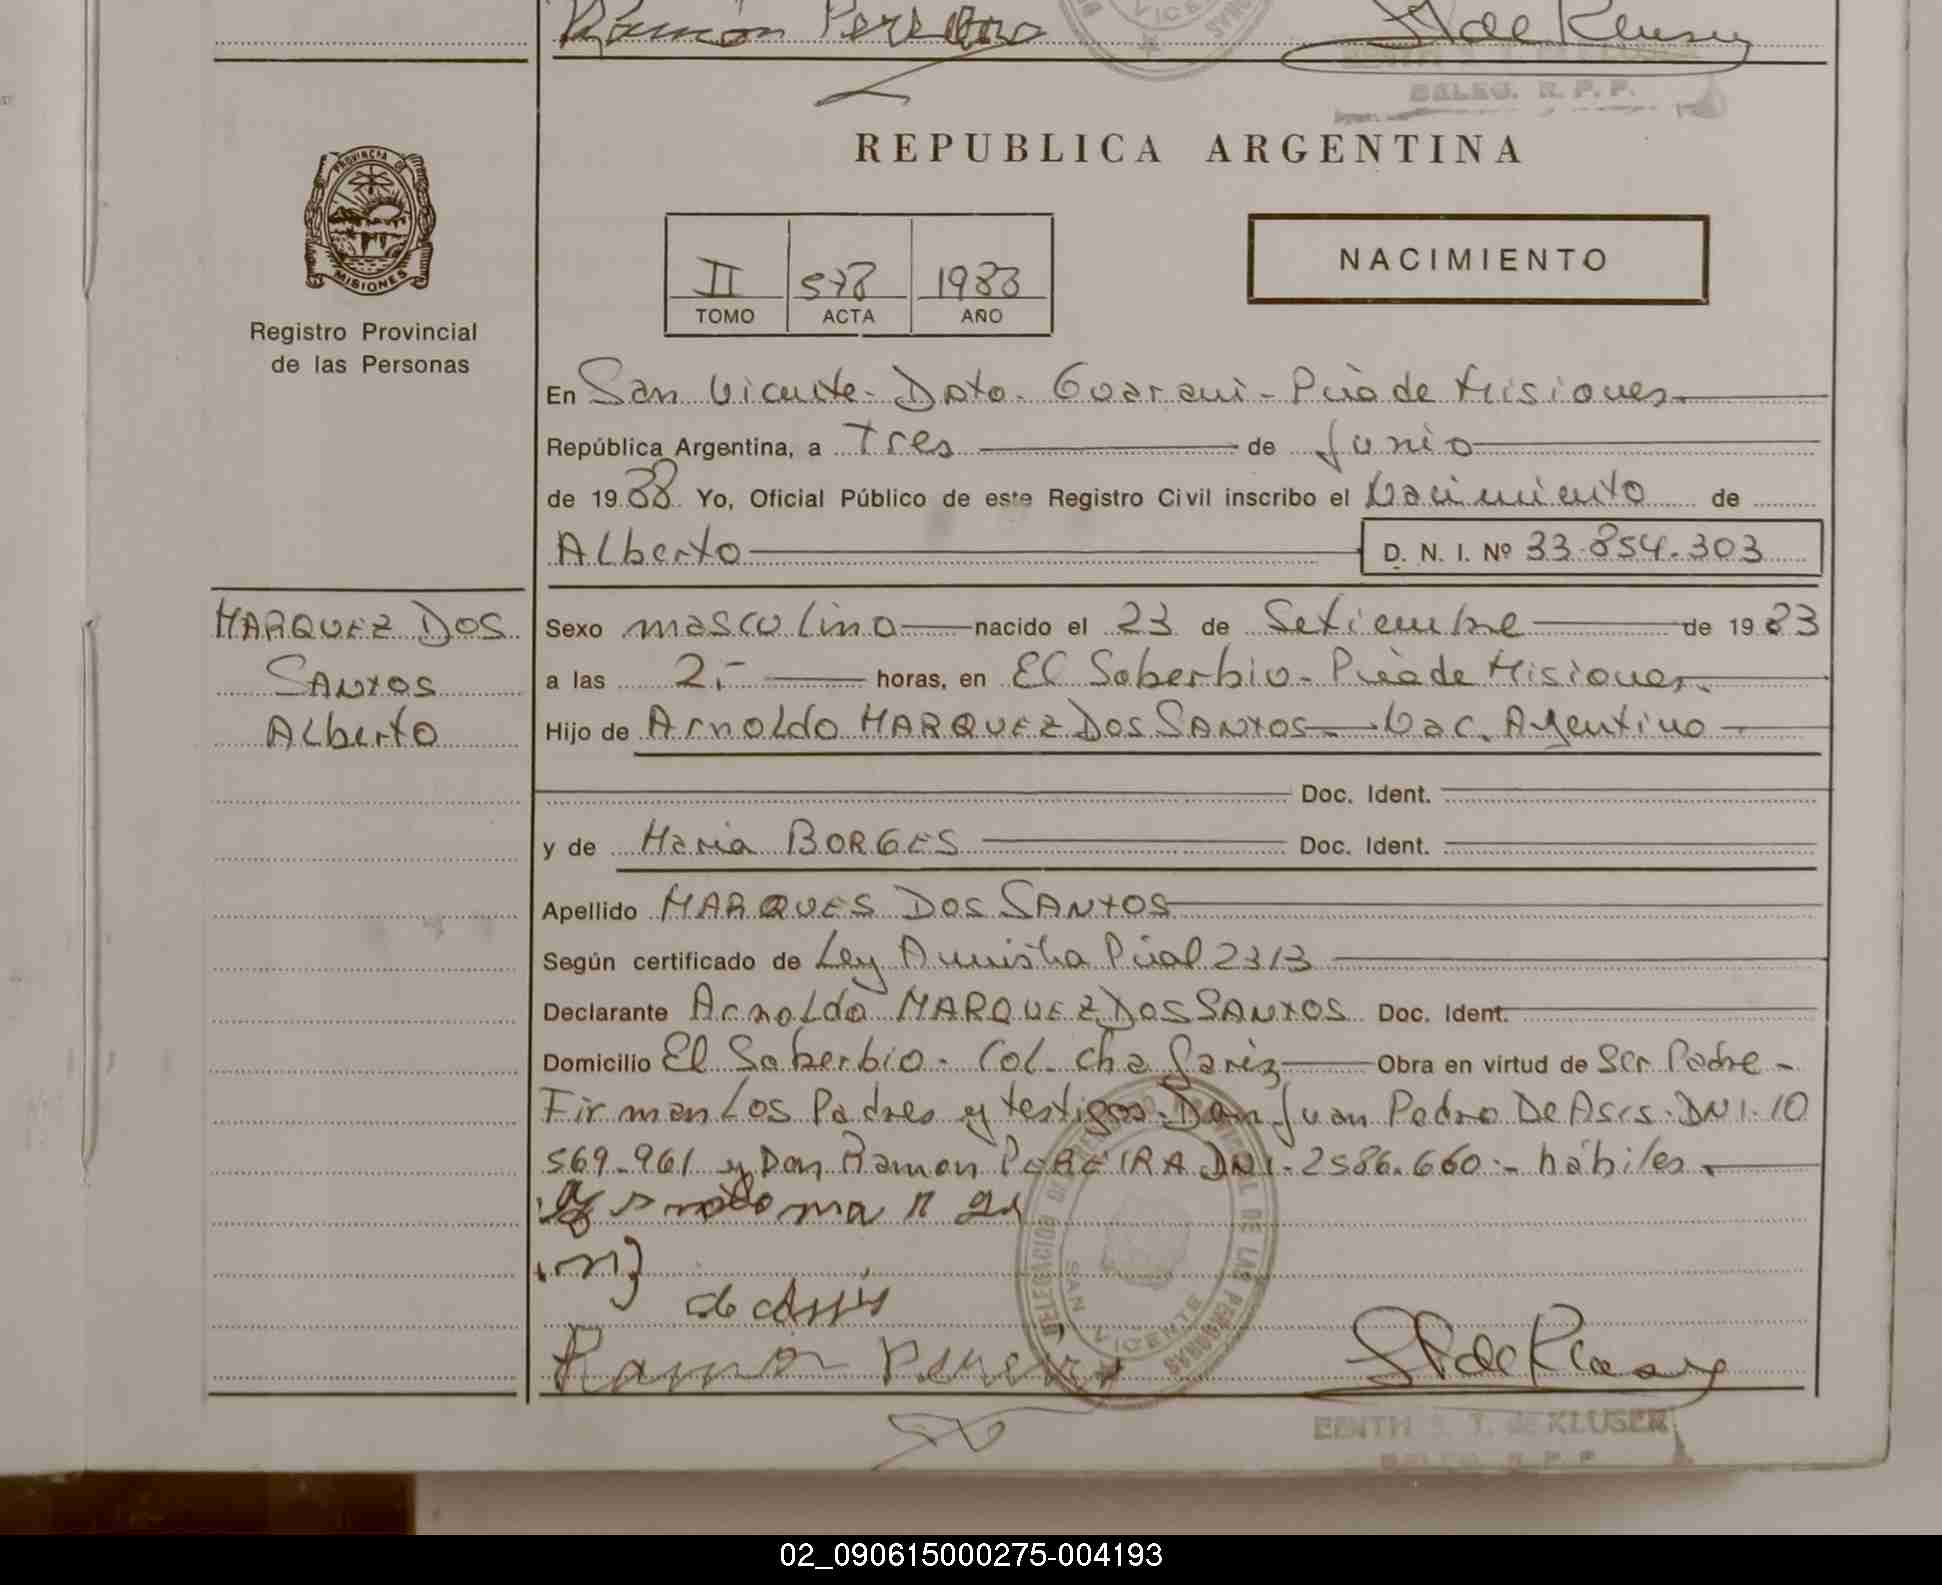 Ramón Pereira
DELEG. R. P. P.
REPUBLICA ARGENTINA
PROVINCIA DE
MISIONES
Registro Provincial
de las Personas
II 578 1988
TOMO ACTA AÑO
NACIMIENTO
En San Vicente - Dpto. Guaraní - Pcia de Misiones.
República Argentina, a Tres de Junio
de 1988 Yo, Oficial Público de este Registro Civil inscribo el Nacimiento de
Alberto D. N. I. Nº 33.854.303
MARQUEZ DOS
SANTOS
Alberto
Sexo masculino nacido el 23 de Setiembre de 1983
a las 2.- horas, en El Soberbio - Pcia de Misiones.
Hijo de Arnoldo MARQUEZ DOS SANTOS - Nac. Argentino
Doc. Ident.
y de Maria BORGES Doc. Ident.
Apellido MARQUES DOS SANTOS
Según certificado de Ley Amnistia Pcial 2313
Declarante Arnoldo MARQUEZ DOS SANTOS Doc. Ident.
Domicilio El Soberbio - Col. Cha Gariz Obra en virtud de Ser Padre -
Firman Los Padres y testigos Don Juan Pedro De Asis - DNI. 10
569.961 y Don Ramon PEREIRA DNI. 2586.660 - hábiles.
de Assis
Ramon Pereira
DELEGACION DEL REGISTRO PROVINCIAL DE LAS PERSONAS
SAN VICENTE
EDITH S. T. de KLUSER
DELEG. R. P. P.
02_090615000275-004193